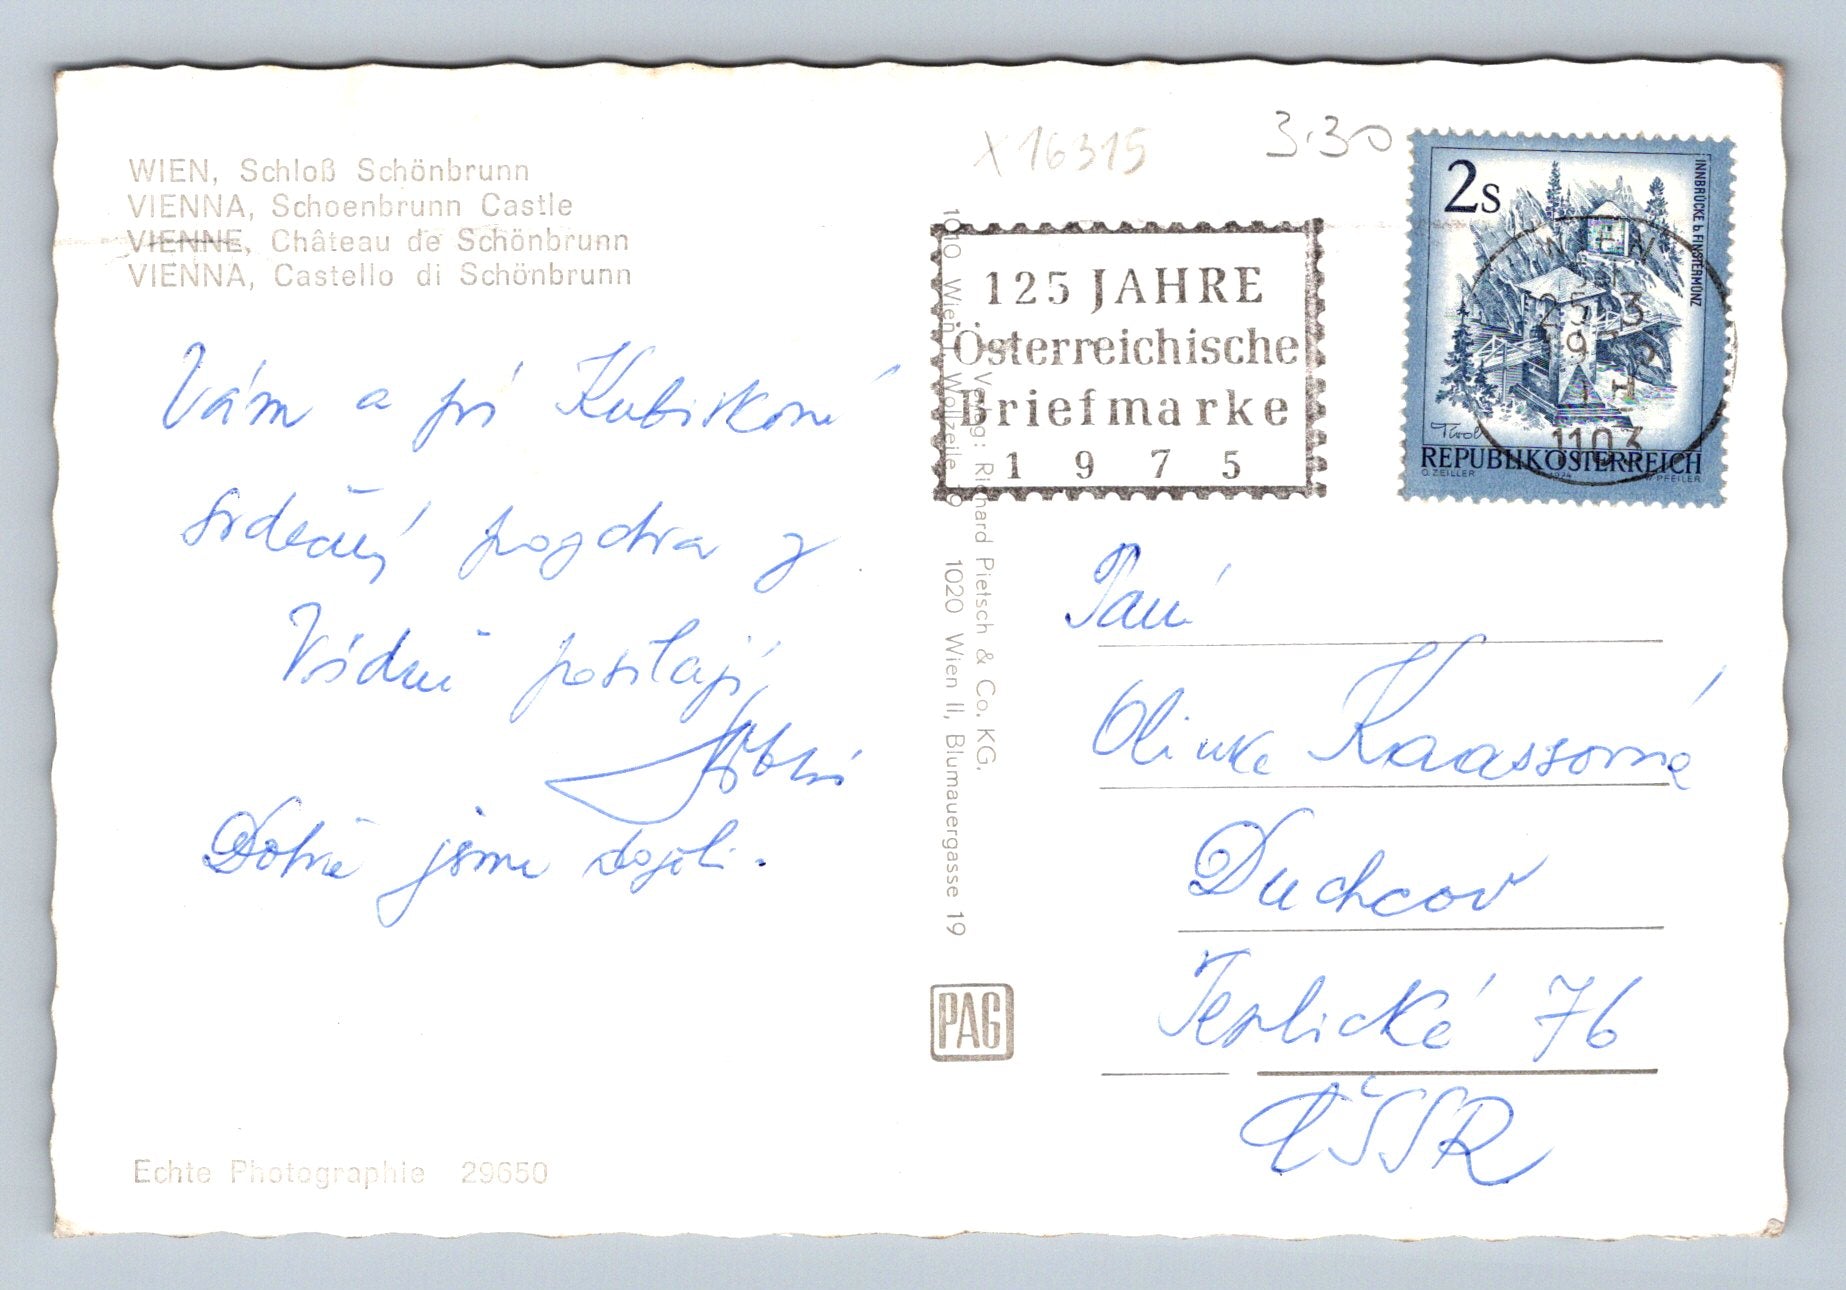 WIEN, Schloß Schönbrunn
VIENNA, Schoenbrunn Castle
VIENNE, Château de Schönbrunn
VIENNA, Castello di Schönbrunn
Vám a pí Kubiskové
srdečný pozdrav z
Vídně posílají
Dobře jsme dojeli.
Echte Photographie 29650
Verlag: Richard Pietsch & Co. KG,
1010 Wien I, Wollzeile 1020 Wien II, Blumauergasse 19
PAG
X 16315
3.30
125 JAHRE
Österreichische
Briefmarke
1975
2s
INNBRÜCKE b. FINSTERMÜNZ
Tirol
REPUBLIK ÖSTERREICH
O. ZEILLER 1974 PFEILER
WIEN
25.-3
1103
Paní
Olinka Kaassová
Duchcov
Teplická 76
ČSSR